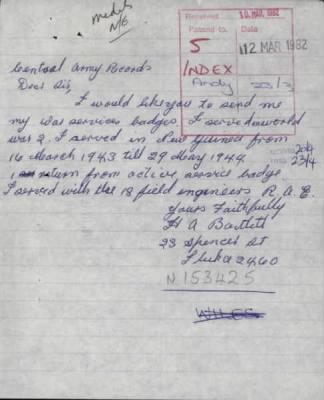 medals
N/E
Received 10 MAR 1982
Passed to Date
5 12 MAR 1982
INDEX
Andy 23/3
Central Army Records
Dear Sir,
I would like you to send me
my war services badges. I served in world
war 2. I served in New Guinea from
16 March 1943 till 29 May 1944
1 return from active service badge
I served with the 18 field engineers R. A. E.
20/4
23/4
Yours Faithfully
H A Bartlett
23 Spencer St
Iluka 2460
N 153425